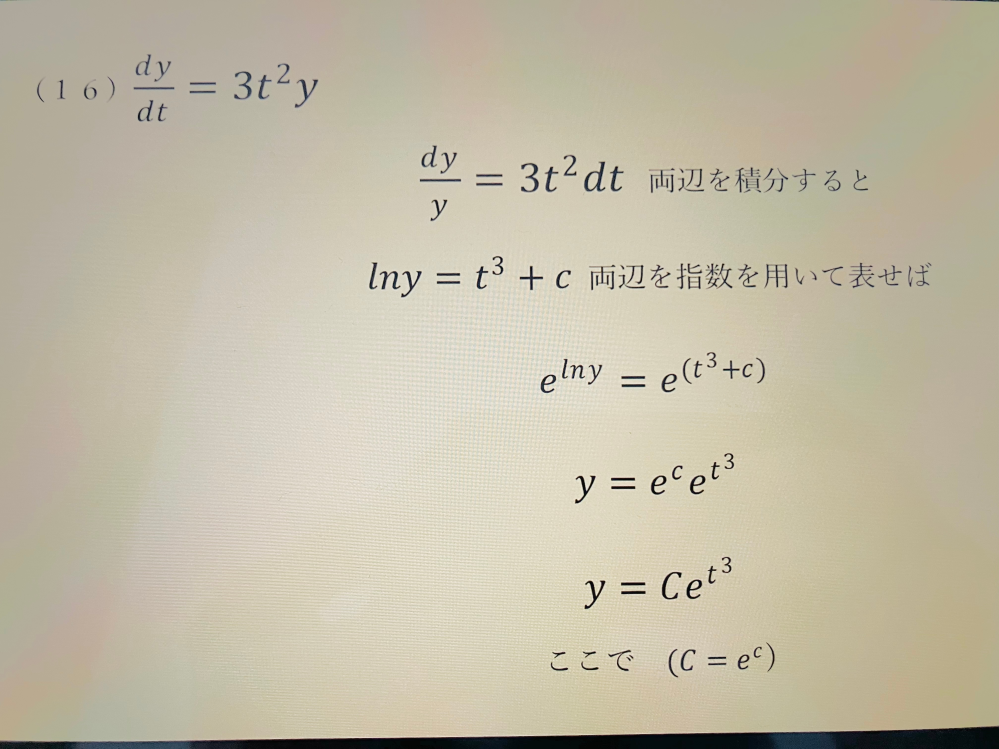 （１６）dy/dt = 3t²y
dy/y = 3t²dt 両辺を積分すると
lny = t³ + c 両辺を指数を用いて表せば
e^{lny} = e^{(t³+c)}
y = e^c e^{t³}
y = Ce^{t³}
ここで　(C = e^c)